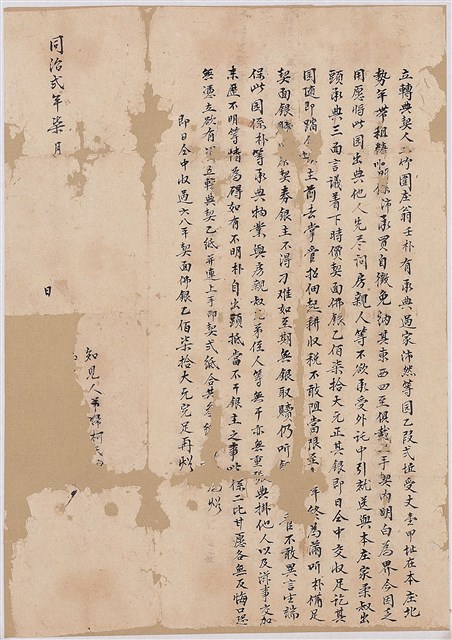 立轉典契人二竹圍庄翁壬朴有承典過家沛然等園乙段弍坵受丈壹甲址在本庄北
勢年帶租緣沛承買自徵免納其東西四至俱載上手契內明白為界今因乏
用愿將此園出典他人先尽问房親人等不欲承受外託中引就送與本庄家柔奴出
頭承典三面言議着下時價契面佛銀乙佰柒拾大元正其銀即日仝中交收足訖其
園隨即踏主前去掌管招佃起耕收稅不敢阻當限至年終為滿听朴備足
契面銀贖契券銀主不得刁难如至期無銀取贖仍听不敢異言生端
保此園係朴等承典物業與房親叔兄弟侄人等無干亦無重張典掛他人以及滋事交加
来歷不明等情為碍如有不明朴自出頭抵當不干銀主之事此係二比甘愿各無反悔口恐
無憑立欲有立轉典契乙紙并連上手印契弍紙合共
即日仝中收過六八平契面佛銀乙佰柒拾大元完足再炤
知見人弟婦柯氏
同治弍年柒月日